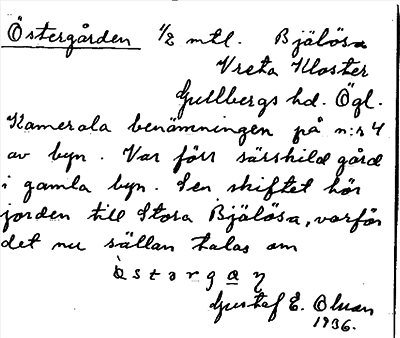 Östergården 1/2 mtl. Bjälösa
Vreta Kloster
Gullbergs hd. Ögl.
Kamerala benämningen på n:r 4
av byn. Var förr särskild gård
i gamla byn. Sen skiftet hör
jorden till Stora Bjälösa, varför
det nu sällan talas om
ö̀stərga̲ŋ
Gustaf E. Olsson
1936.